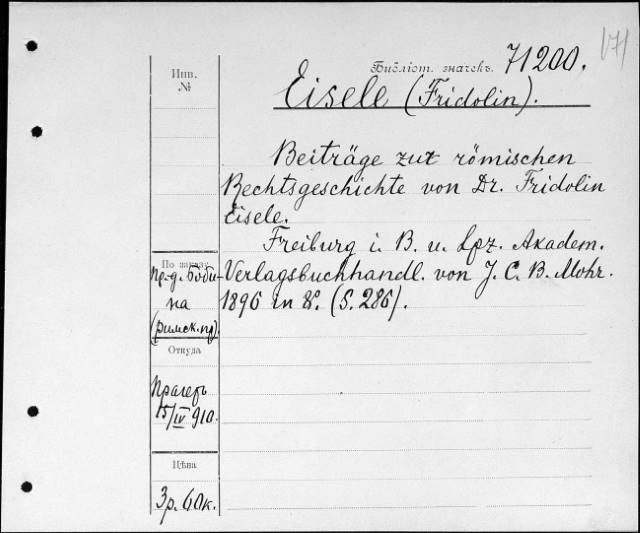 171
Инв.
№
Библіот. значекъ. 71200.
Eisele (Fridolin).
Beiträge zur römischen
Rechtsgeschichte von Dr. Fridolin
Eisele.
Freiburg i. B. u. Lpz. Akadem.
Verlagsbuchhandl. von J. C. B. Mohr.
1896 in 8. (S. 286).
По заказу
пр-д. Боби-
на
(римск. пр).
Откуда
Прагеръ
15/IV 910.
Цѣна
3 р. 60 к.